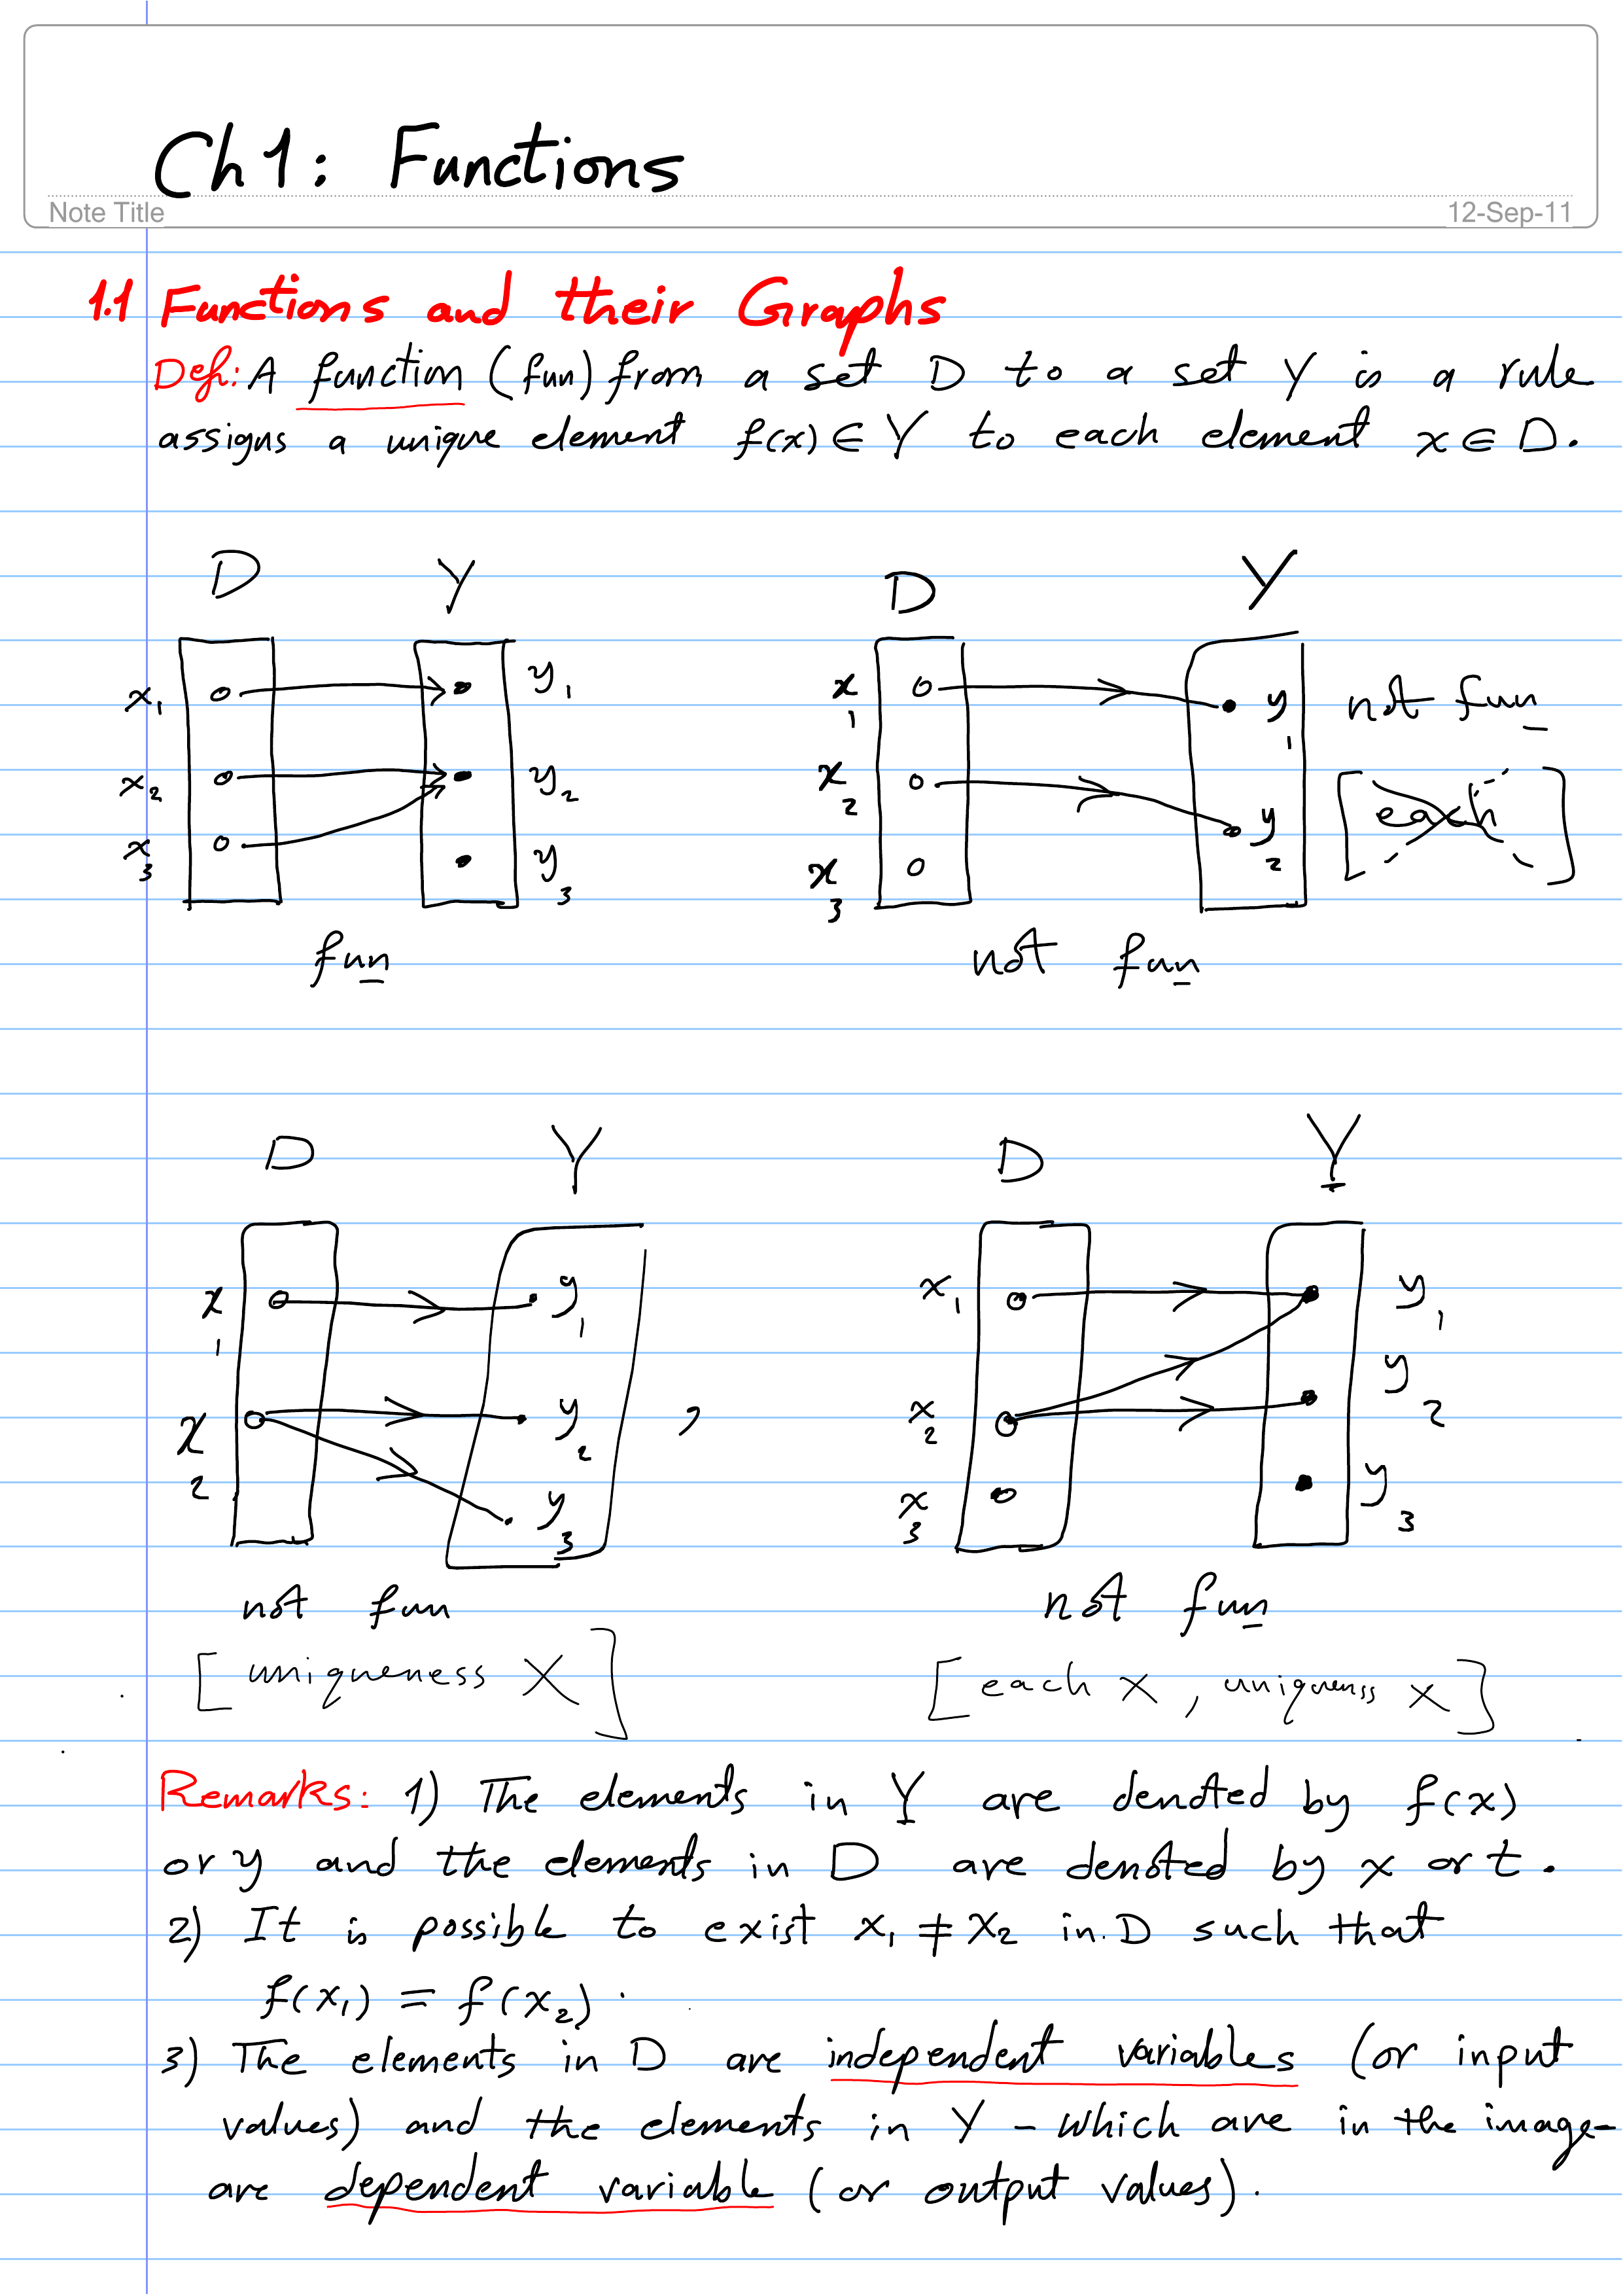 Ch1: Functions
Note Title
12-Sep-11
1.1 Functions and their Graphs
Def: A function (fun) from a set D to a set Y is a rule
assigns a unique element f(x) ∈ Y to each element x ∈ D.
D Y D Y
x₁ y₁ x₁ y₁ not fun
x₂ y₂ x₂ y₂ [each]
x₃ y₃ x₃
fun not fun
D Y D Y
x₁ y₁ x₁ y₁
x₂ y₂ , x₂ y₂
y₃ x₃ y₃
not fun not fun
[uniqueness X] [each X, uniqueness X]
Remarks: 1) The elements in Y are denoted by f(x)
or y and the elements in D are denoted by x or t.
2) It is possible to exist x₁ ≠ x₂ in D such that
f(x₁) = f(x₂).
3) The elements in D are independent variables (or input
values) and the elements in Y - which are in the image -
are dependent variable (or output values).